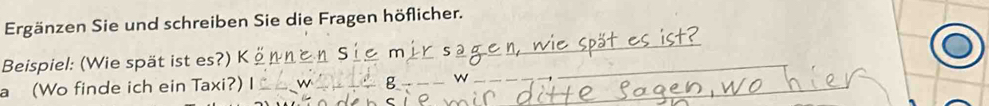 Ergänzen Sie und schreiben Sie die Fragen höflicher.
Beispiel: (Wie spät ist es?) Können Sie mir sagen, wie spät es ist?
a (Wo finde ich ein Taxi?) I w g w hier
Sie mir ditte sagen, wo